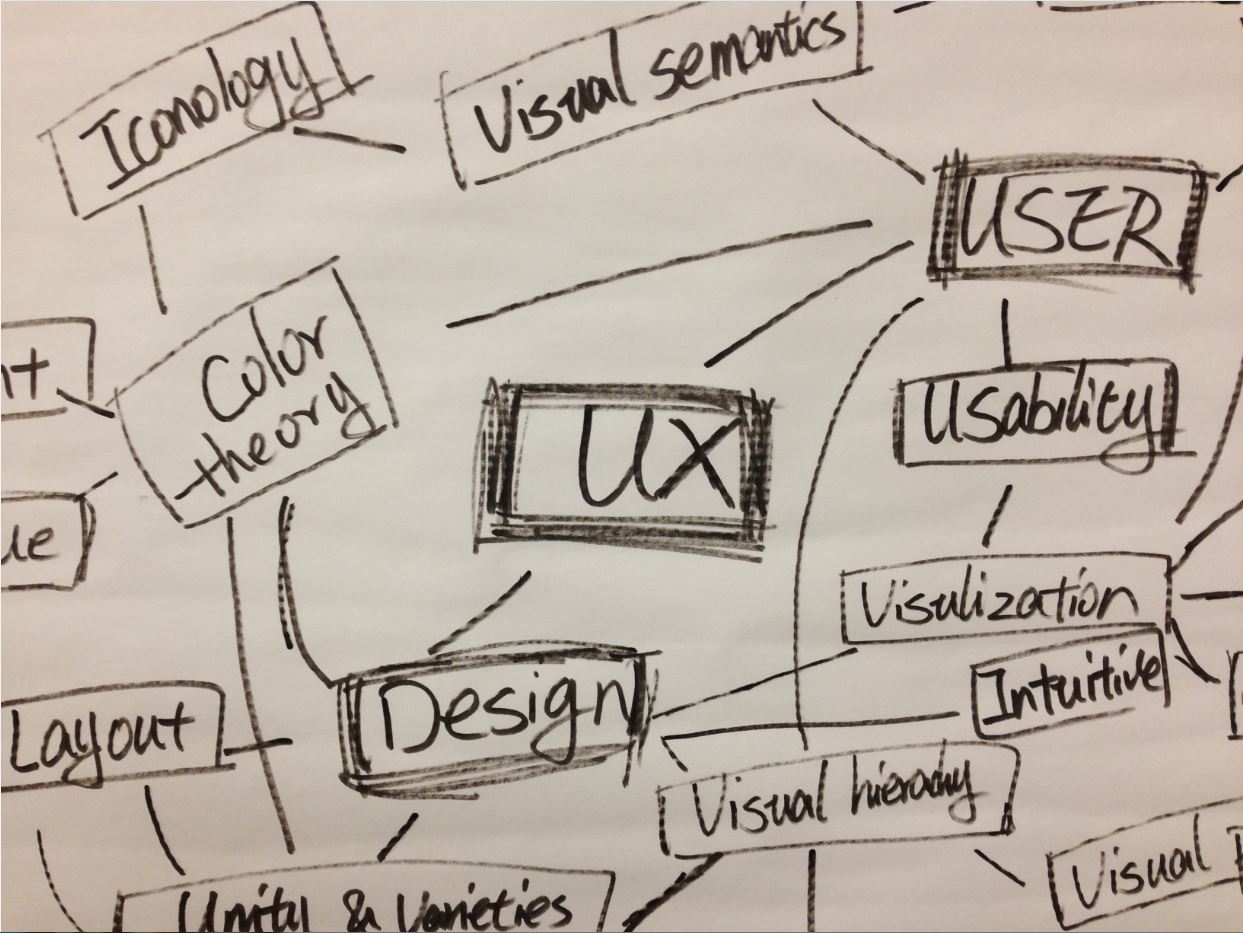 Iconology
Visual semantics
USER
Color
theory
UX
Usability
Visulization
Intuitive
Design
Layout
Visual hierachy
Visual
Unity & Varieties